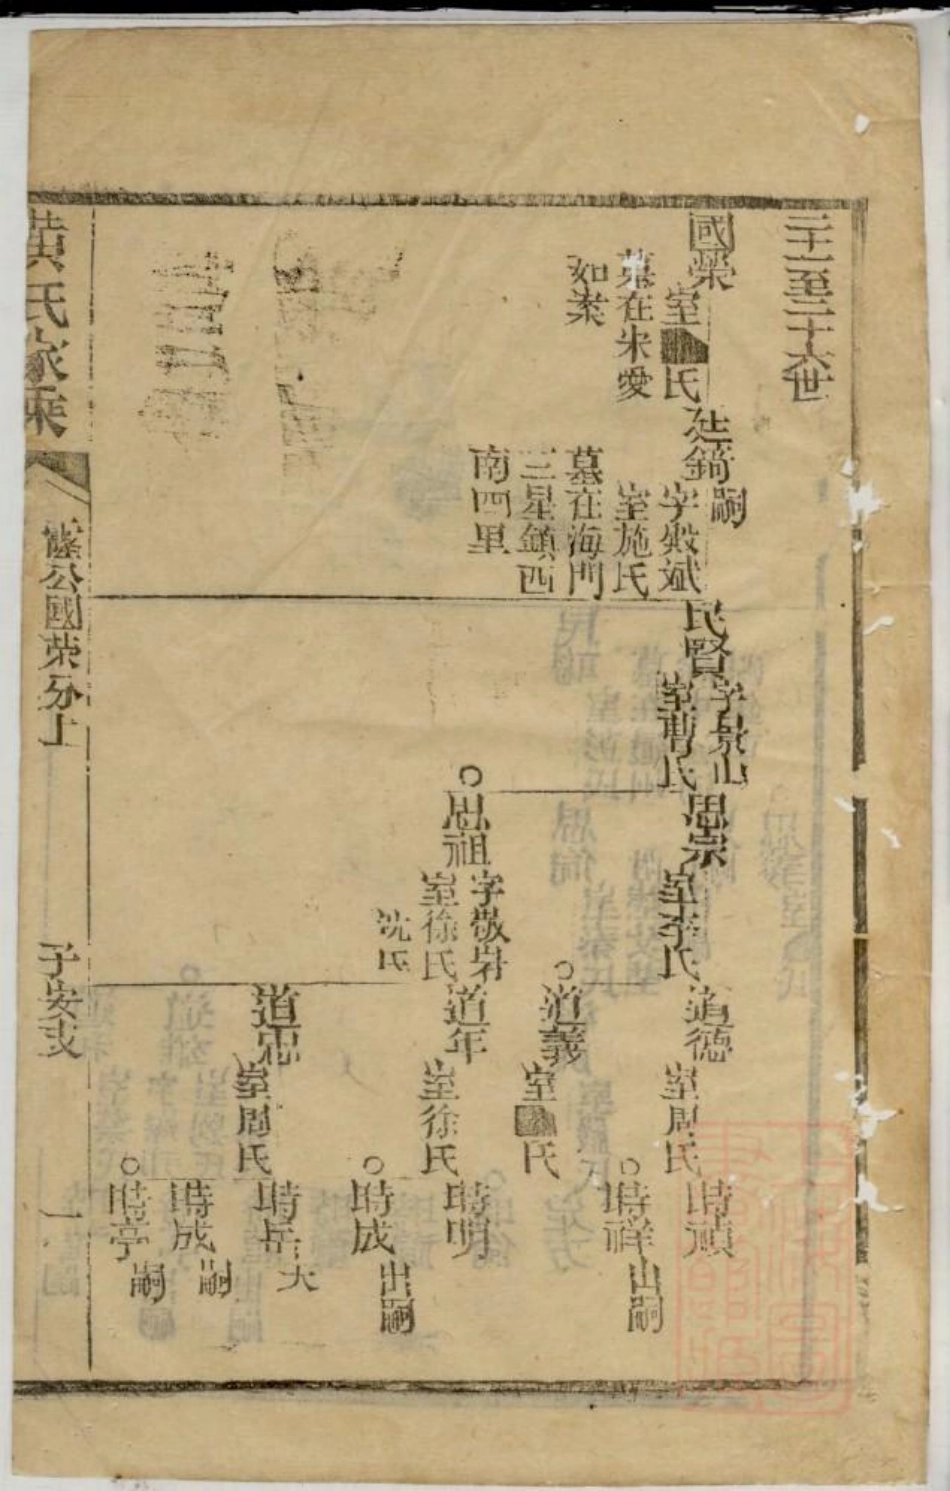 二十一至二十六世
國榮
室■氏
墓在朱愛
如桒
廷錡
嗣
字殿斌
室施氏
墓在海門
三星鎮西
南四里
民賢
字景山
室曹氏
思宗
室李氏
○思祖
字敬岩
室徐氏
沈氏
道德
室周氏
○道義
室■氏
道年
室徐氏
道忠
室周氏
時禎
○時祥
出嗣
時明
○時成
出嗣
時岳
大
時成
嗣
○時亭
嗣
黃氏家乘
公國荣分上
子安支
一